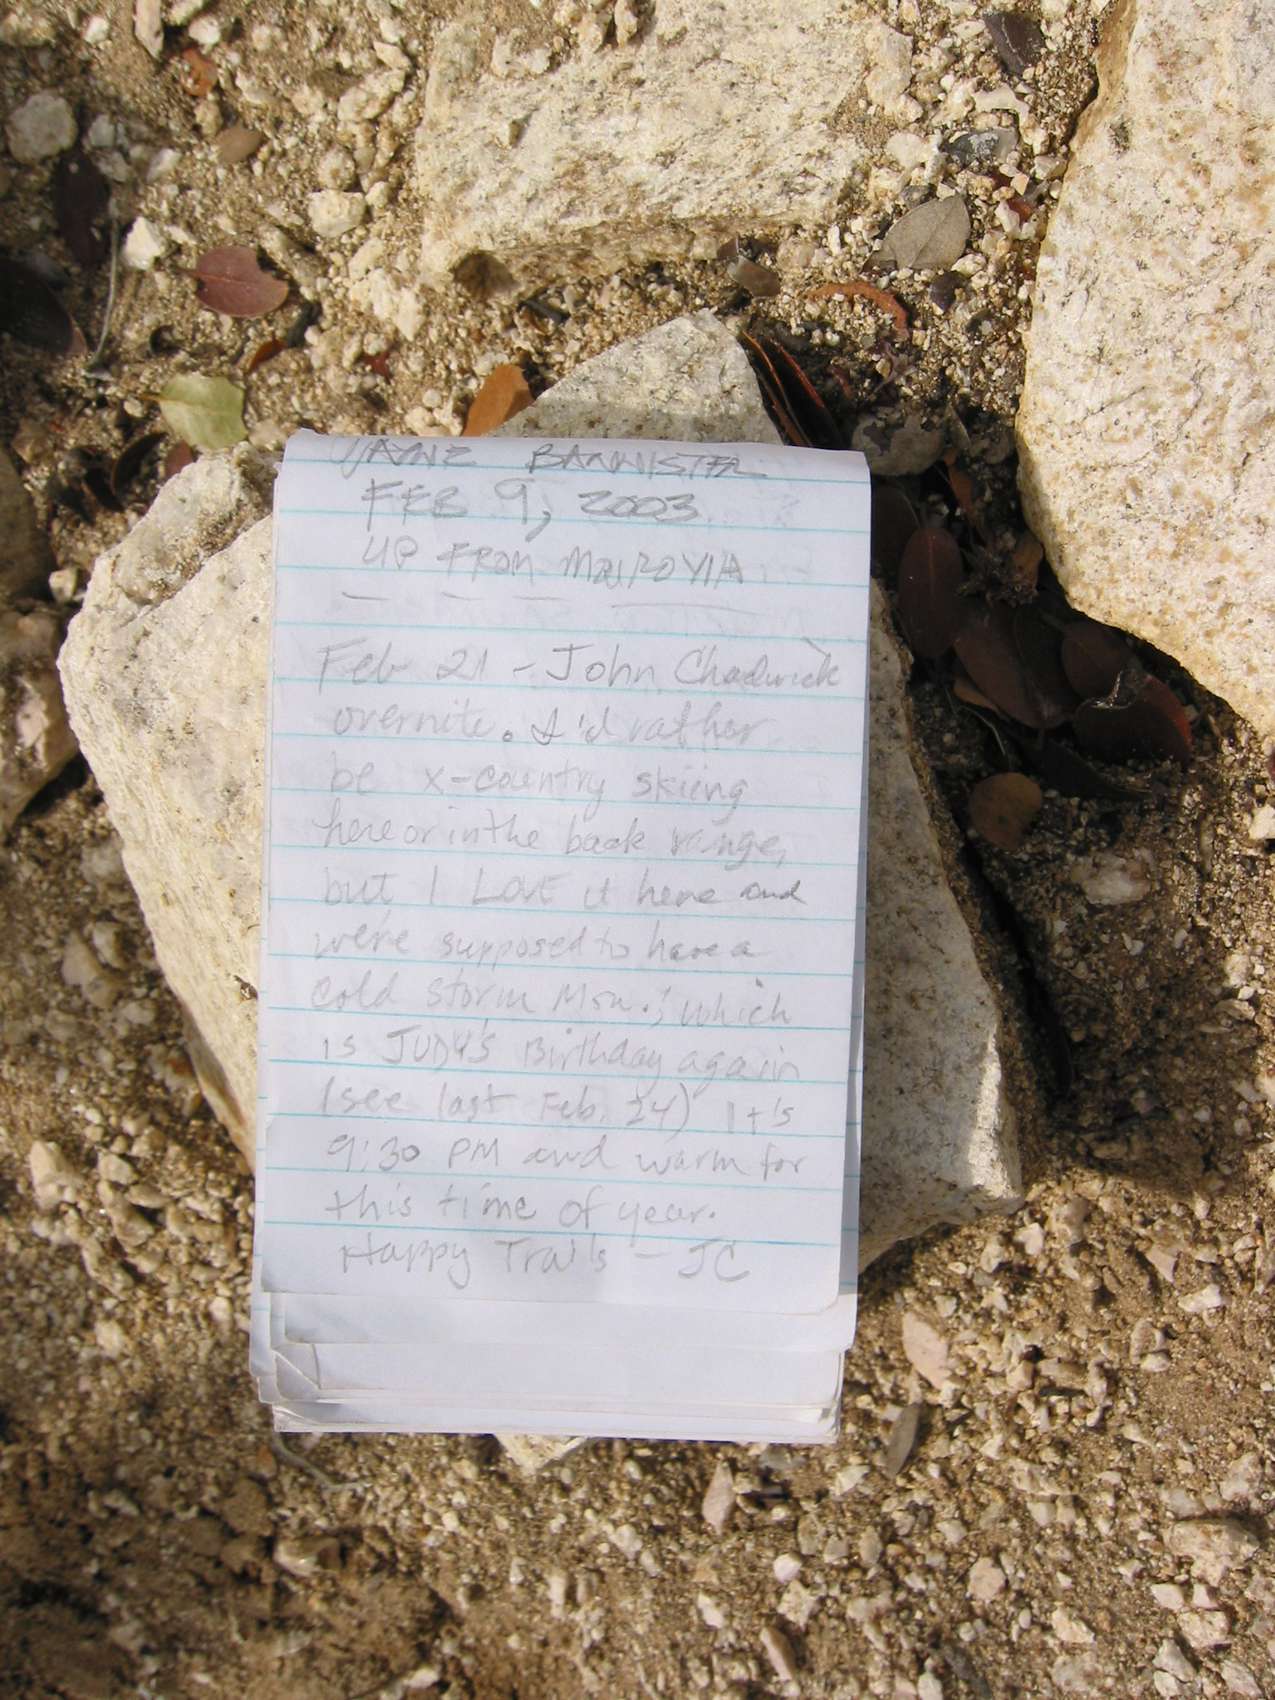 JAYNE BANNISTER
FEB 9, 2003
UP FROM MONROVIA
Feb 21 - John Chadwick
overnite. I'd rather
be x-country skiing
here or in the back range,
but I Love it here and
we're supposed to have a
cold storm Mon.; which
is JUDY'S Birthday again
(see last Feb. 24) It's
9:30 PM and warm for
this time of year.
Happy Trails - JC